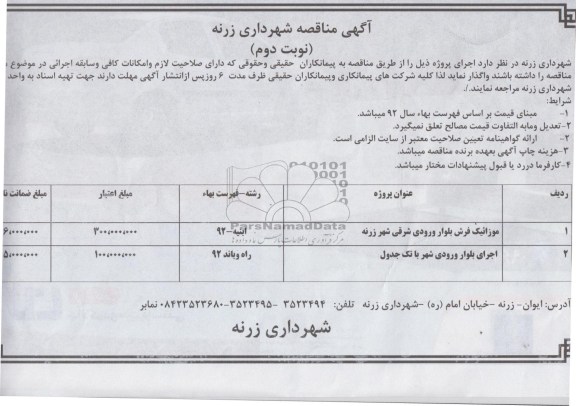 آگهی مناقصه شهرداری زرنه
(نوبت دوم)
شهرداری زرنه در نظر دارد اجرای پروژه ذیل را از طریق مناقصه به پیمانکاران حقیقی وحقوقی که دارای صلاحیت لازم وامکانات کافی وسابقه اجرائی در موضوع
مناقصه را داشته باشند واگذار نماید لذا کلیه شرکت های پیمانکاری وپیمانکاران حقیقی ظرف مدت ۶ روزپس ازانتشار آگهی مهلت دارند جهت تهیه اسناد به واحد
شهرداری زرنه مراجعه نمایند./.
شرایط:
۱- مبنای قیمت بر اساس فهرست بهاء سال ۹۲ میباشد.
۲-تعدیل ومابه التفاوت قیمت مصالح تعلق نمیگیرد.
۲- ارائه گواهینامه تعیین صلاحیت معتبر از سایت الزامی است.
۳-هزینه چاپ آگهی بعهده برنده مناقصه میباشد.
۴-کارفرما دررد یا قبول پیشنهادات مختار میباشد.
ردیف عنوان پروژه رشته-فهرست بهاء مبلغ اعتبار مبلغ ضمانت
۱ موزائیک فرش بلوار ورودی شرقی شهر زرنه ابنیه-۹۲ ۳۰۰،۰۰۰،۰۰۰ ۶،۰۰۰،۰۰۰
۲ اجرای بلوار ورودی شهر با تک جدول راه وباند ۹۲ ۱۰۰،۰۰۰،۰۰۰ ۵،۰۰۰،۰۰۰
ParsNamadData
آدرس: ایوان- زرنه -خیابان امام (ره) -شهرداری زرنه تلفن: ۳۵۲۳۴۹۴ -۳۵۲۳۴۹۵-۰۸۴۲۳۵۲۳۶۸۰ نمابر
شهرداری زرنه